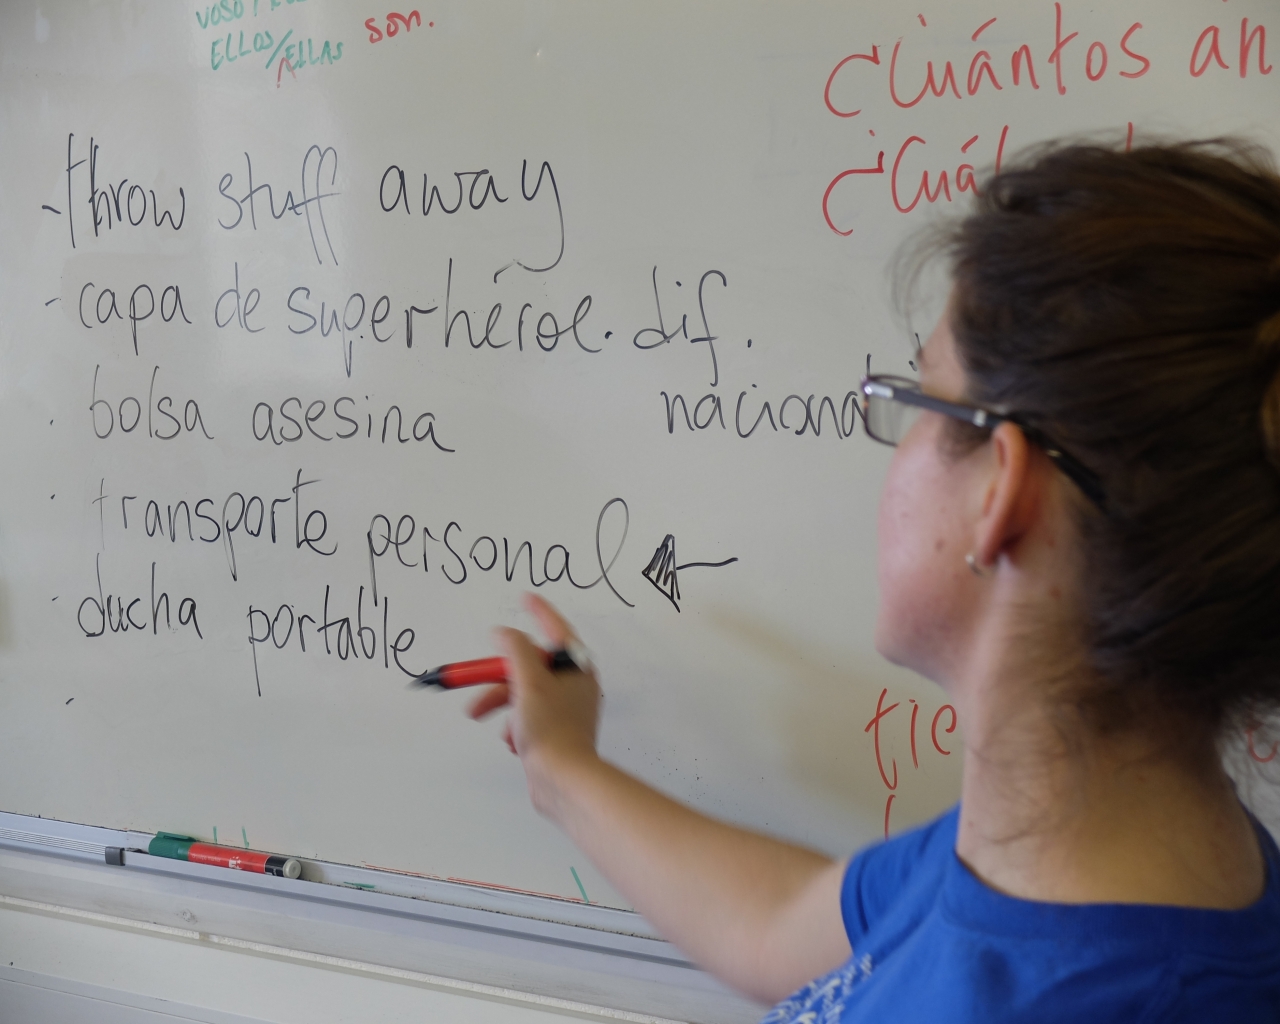 ELLOS/ELLAS son.
¿Cuántos añ
¿Cuál
- throw stuff away
- capa de superhéroe. dif.
naciona
· bolsa asesina
· transporte personal ←
· ducha portable
-
tie